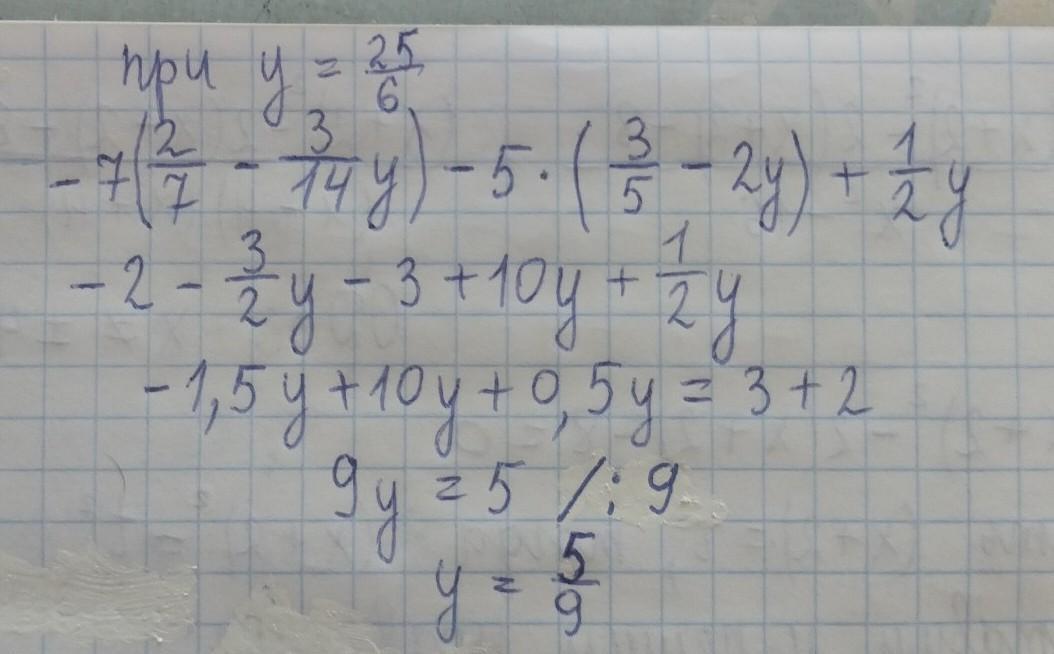 при y = 25/6
-7(2/7 - 3/14 y) - 5 · (3/5 - 2y) + 1/2 y
-2 - 3/2 y - 3 + 10y + 1/2 y
-1,5y + 10y + 0,5y = 3 + 2
9y = 5 /: 9
y = 5/9